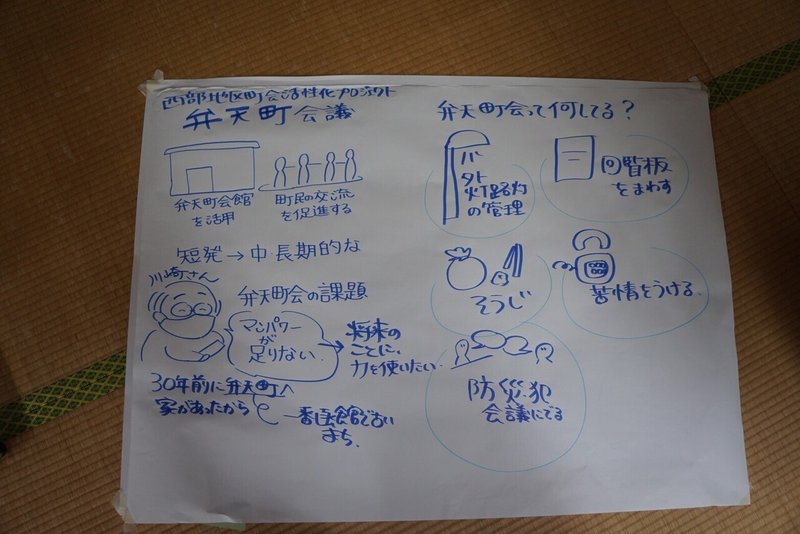 西部地区町会活性化プロジェクト
弁天町会議
弁天町会館
を活用
町民の交流
を促進する
短発→中長期的な
川崎さん
弁天町会の課題
マンパワー
が
足りない.
将来の
ことに、
力を使いたい.
30年前に弁天町へ
家があったから
一番函館で古い
まち.
弁天町会って何してる?
外
灯路灯
の管理
回覧板
をまわす
そうじ
苦情をうける.
防災犯
会議にでる